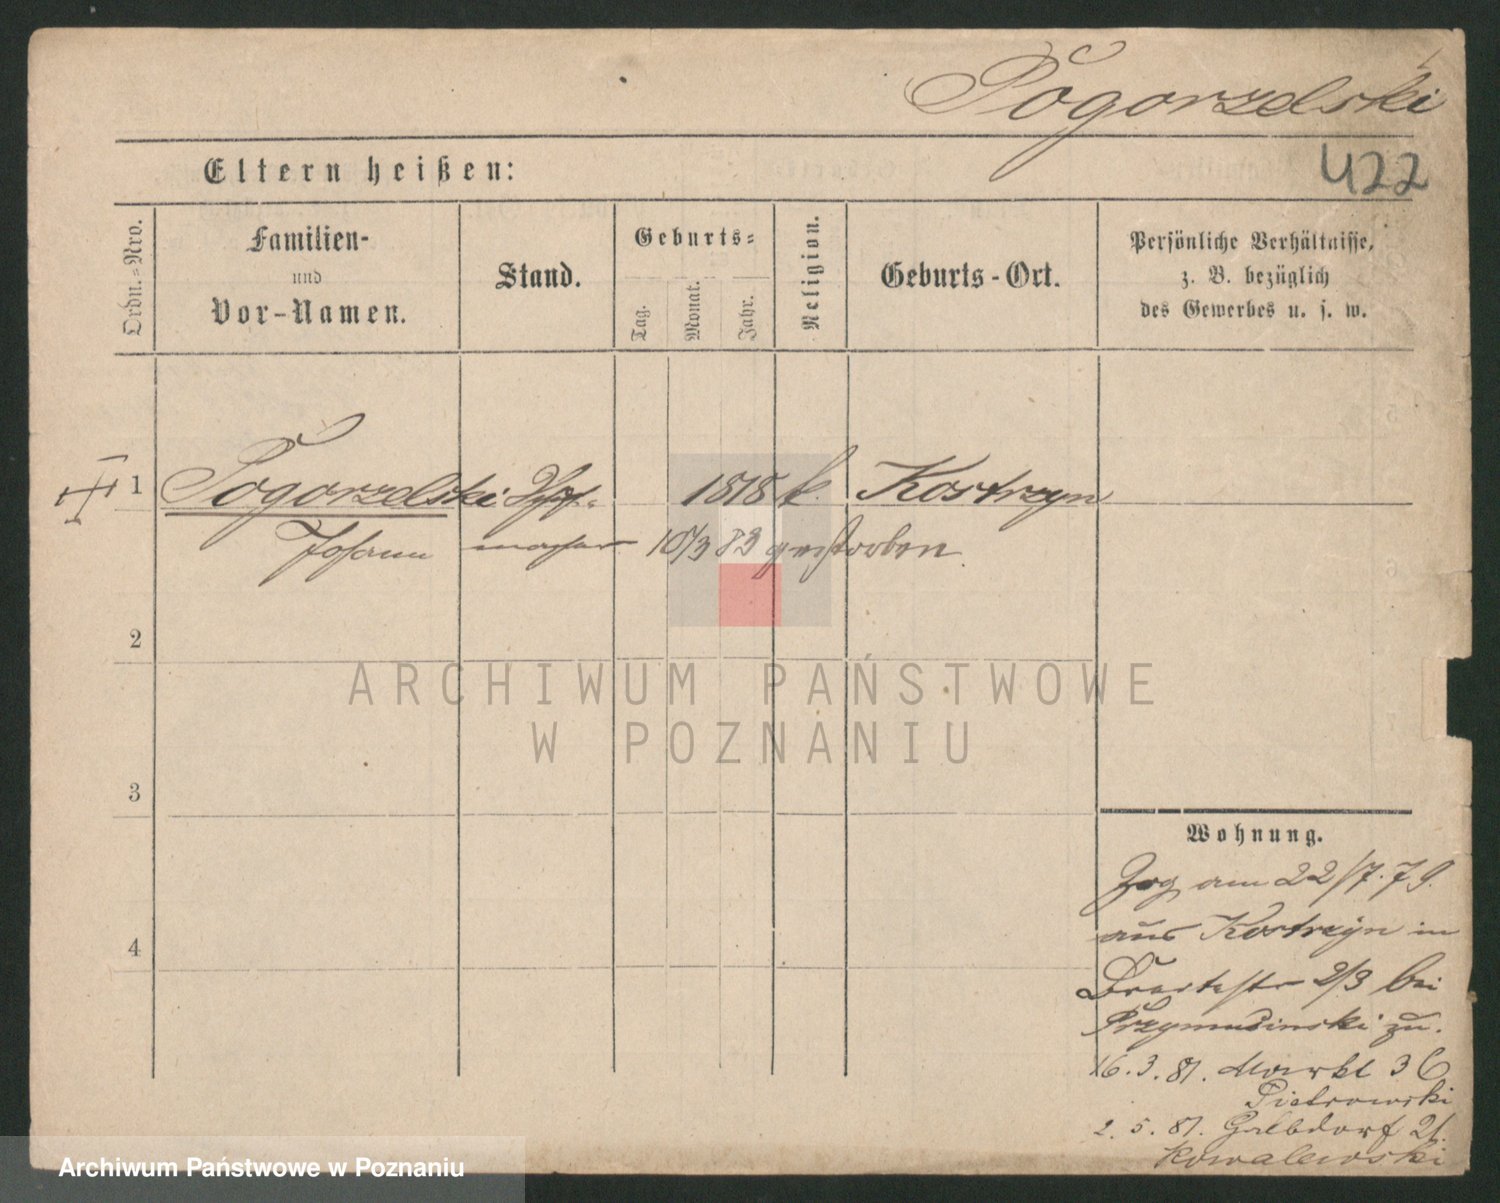 Pogorzelski
422
Eltern heißen:
Ordn.-Nro.
Familien-
und
Vor-Namen.
Stand.
Geburts-
Tag.
Monat.
Jahr.
Religion.
Geburts-Ort.
Persönliche Verhältnisse,
z. B. bezüglich
des Gewerbes u. s. w.
1 Pogorzelski 1818 k. Kostrzyn
Johann macher 10/3 83 gestorben.
2
3
4
Wohnung.
Zog am 22/7.79.
aus Kostrzyn in
2/3 bei
zu.
16.3.81. Markt 36
Pietrowski
2.5.81. 21.
Kowalewski
ARCHIWUM PAŃSTWOWE
W POZNANIU
Archiwum Państwowe w Poznaniu